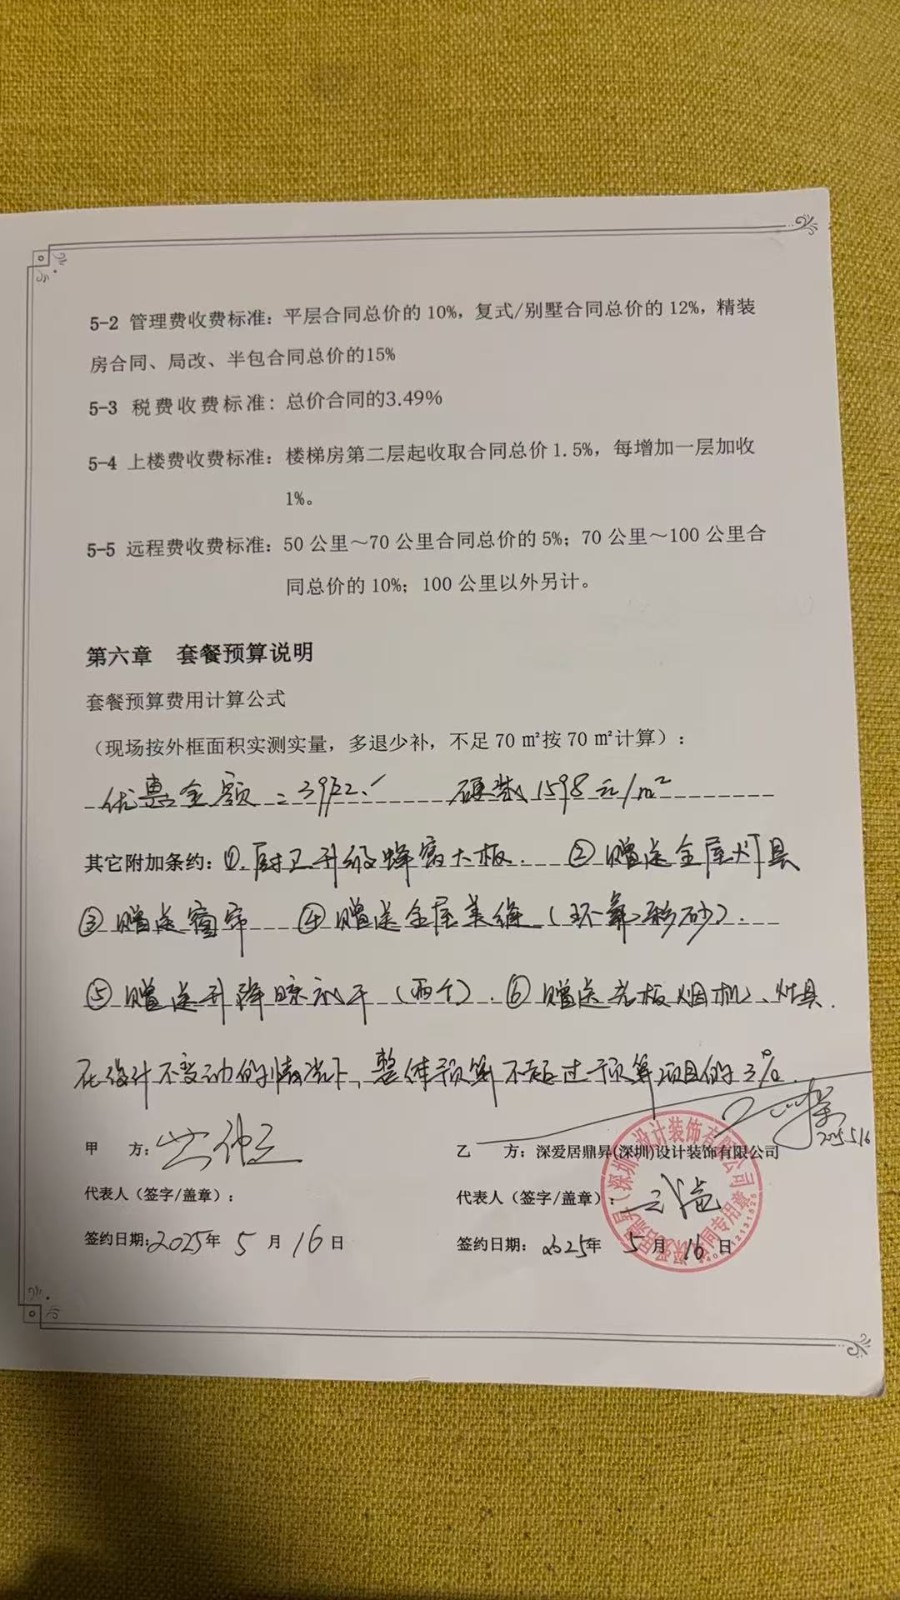 5-2 管理费收费标准：平层合同总价的 10%，复式/别墅合同总价的 12%，精装
房合同、局改、半包合同总价的15%
5-3 税费收费标准：总价合同的3.49%
5-4 上楼费收费标准：楼梯房第二层起收取合同总价 1.5%，每增加一层加收
1%。
5-5 远程费收费标准：50 公里～70 公里合同总价的 5%；70 公里～100 公里合
同总价的 10%；100 公里以外另计。
第六章 套餐预算说明
套餐预算费用计算公式
（现场按外框面积实测实量，多退少补，不足 70 ㎡按 70 ㎡计算）：
优惠金额 = 硬装 1598元/m²
其它附加条约：①.厨卫升级蜂窝大板. ②赠送全屋灯具
③赠送窗帘 ④赠送全屋美缝（环氧彩砂）.
⑤赠送升降晾衣杆（两个）. ⑥赠送老板烟机、灶具.
在设计不变动的情况下，整体预算不超过预算项目的3%.
2025.5.16
甲 方：
乙 方：深爱居鼎昇(深圳)设计装饰有限公司
代表人（签字/盖章）：
代表人（签字/盖章）：
签约日期:2025年 5 月 16 日
签约日期：2025年 5 月 16 日